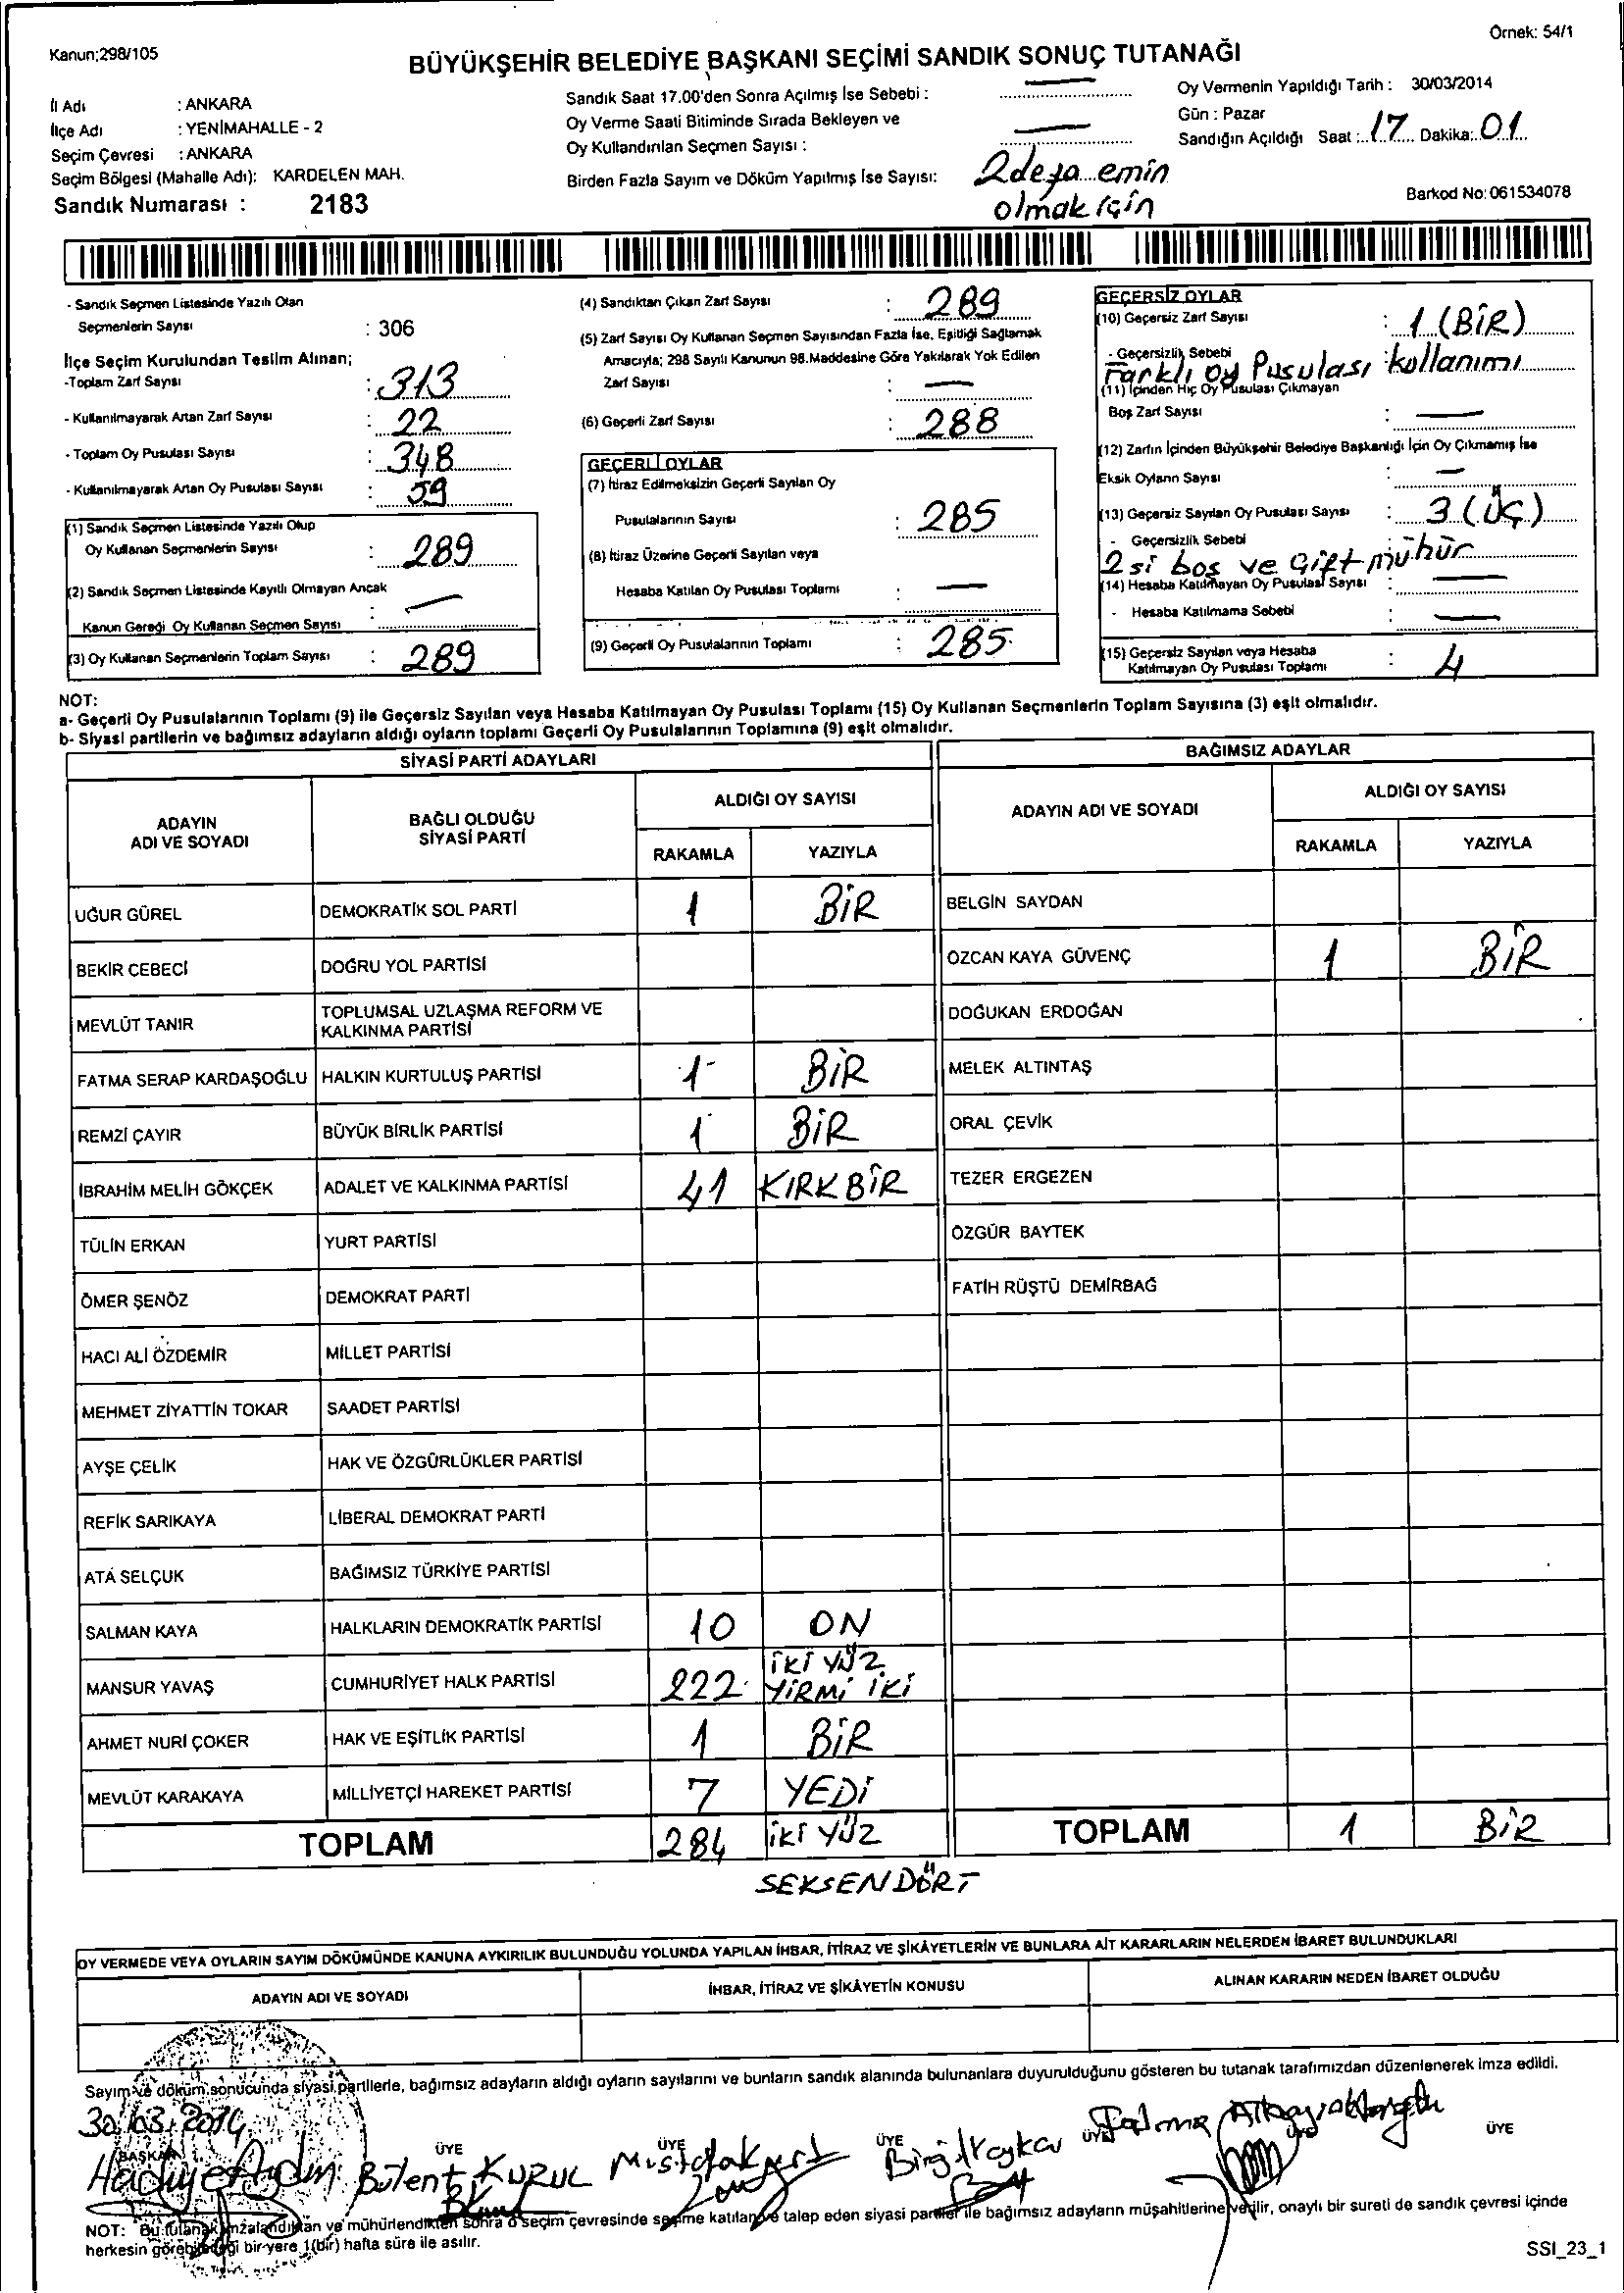 Kanun;298/105
Örnek: 54/1
BÜYÜKŞEHİR BELEDİYE BAŞKANI SEÇİMİ SANDIK SONUÇ TUTANAĞI
İl Adı : ANKARA
İlçe Adı : YENİMAHALLE - 2
Seçim Çevresi : ANKARA
Seçim Bölgesi (Mahalle Adı): KARDELEN MAH.
Sandık Numarası : 2183
Sandık Saat 17.00'den Sonra Açılmış İse Sebebi : —
Oy Verme Saati Bitiminde Sırada Bekleyen ve
Oy Kullandırılan Seçmen Sayısı : —
Birden Fazla Sayım ve Döküm Yapılmış İse Sayısı: 2 defa emin
olmak için
Oy Vermenin Yapıldığı Tarih : 30/03/2014
Gün : Pazar
Sandığın Açıldığı Saat : 17 Dakika: 01
Barkod No: 061534078
- Sandık Seçmen Listesinde Yazılı Olan
Seçmenlerin Sayısı : 306
İlçe Seçim Kurulundan Teslim Alınan;
-Toplam Zarf Sayısı : 313
- Kullanılmayarak Artan Zarf Sayısı : 22
- Toplam Oy Pusulası Sayısı : 348
- Kullanılmayarak Artan Oy Pusulası Sayısı : 59
(1) Sandık Seçmen Listesinde Yazılı Olup
Oy Kullanan Seçmenlerin Sayısı : 289
(2) Sandık Seçmen Listesinde Kayıtlı Olmayan Ancak
Kanun Gereği Oy Kullanan Seçmen Sayısı : —
(3) Oy Kullanan Seçmenlerin Toplam Sayısı : 289
(4) Sandıktan Çıkan Zarf Sayısı : 289
(5) Zarf Sayısı Oy Kullanan Seçmen Sayısından Fazla İse, Eşitliği Sağlamak
Amacıyla; 298 Sayılı Kanunun 98.Maddesine Göre Yakılarak Yok Edilen
Zarf Sayısı : —
(6) Geçerli Zarf Sayısı : 288
GEÇERLİ OYLAR
(7) İtiraz Edilmeksizin Geçerli Sayılan Oy
Pusulalarının Sayısı : 285
(8) İtiraz Üzerine Geçerli Sayılan veya
Hesaba Katılan Oy Pusulası Toplamı : —
(9) Geçerli Oy Pusulalarının Toplamı : 285
GEÇERSİZ OYLAR
(10) Geçersiz Zarf Sayısı : 1 (BİR)
- Geçersizlik Sebebi :
Farklı Oy Pusulası kullanımı
(11) İçinden Hiç Oy Pusulası Çıkmayan
Boş Zarf Sayısı : —
(12) Zarfın İçinden Büyükşehir Belediye Başkanlığı İçin Oy Çıkmamış İse
Eksik Oyların Sayısı : —
(13) Geçersiz Sayılan Oy Pusulası Sayısı : 3 (ÜÇ)
- Geçersizlik Sebebi
2 si boş ve Çift mühür
(14) Hesaba Katılmayan Oy Pusulası Sayısı : —
- Hesaba Katılmama Sebebi : —
(15) Geçersiz Sayılan veya Hesaba
Katılmayan Oy Pusulası Toplamı : 4
NOT:
a- Geçerli Oy Pusulalarının Toplamı (9) ile Geçersiz Sayılan veya Hesaba Katılmayan Oy Pusulası Toplamı (15) Oy Kullanan Seçmenlerin Toplam Sayısına (3) eşit olmalıdır.
b- Siyasi partilerin ve bağımsız adayların aldığı oyların toplamı Geçerli Oy Pusulalarının Toplamına (9) eşit olmalıdır.
SİYASİ PARTİ ADAYLARI
ADAYIN
ADI VE SOYADI
BAĞLI OLDUĞU
SİYASİ PARTİ
ALDIĞI OY SAYISI
RAKAMLA YAZIYLA
UĞUR GÜREL DEMOKRATİK SOL PARTİ 1 BİR
BEKİR CEBECİ DOĞRU YOL PARTİSİ
MEVLÜT TANIR TOPLUMSAL UZLAŞMA REFORM VE
KALKINMA PARTİSİ
FATMA SERAP KARDAŞOĞLU HALKIN KURTULUŞ PARTİSİ 1 BİR
REMZİ ÇAYIR BÜYÜK BİRLİK PARTİSİ 1 BİR
İBRAHİM MELİH GÖKÇEK ADALET VE KALKINMA PARTİSİ 41 KIRKBİR
TÜLİN ERKAN YURT PARTİSİ
ÖMER ŞENÖZ DEMOKRAT PARTİ
HACI ALİ ÖZDEMİR MİLLET PARTİSİ
MEHMET ZİYATTİN TOKAR SAADET PARTİSİ
AYŞE ÇELİK HAK VE ÖZGÜRLÜKLER PARTİSİ
REFİK SARIKAYA LİBERAL DEMOKRAT PARTİ
ATA SELÇUK BAĞIMSIZ TÜRKİYE PARTİSİ
SALMAN KAYA HALKLARIN DEMOKRATİK PARTİSİ 10 ON
MANSUR YAVAŞ CUMHURİYET HALK PARTİSİ 222 İKİ YÜZ
YİRMİ İKİ
AHMET NURİ ÇOKER HAK VE EŞİTLİK PARTİSİ 1 BİR
MEVLÜT KARAKAYA MİLLİYETÇİ HAREKET PARTİSİ 7 YEDİ
TOPLAM 284 İKİ YÜZ
SEKSENDÖRT
BAĞIMSIZ ADAYLAR
ADAYIN ADI VE SOYADI
ALDIĞI OY SAYISI
RAKAMLA YAZIYLA
BELGİN SAYDAN
ÖZCAN KAYA GÜVENÇ 1 BİR
DOĞUKAN ERDOĞAN
MELEK ALTINTAŞ
ORAL ÇEVİK
TEZER ERGEZEN
ÖZGÜR BAYTEK
FATİH RÜŞTÜ DEMİRBAĞ
TOPLAM 1 BİR
OY VERMEDE VEYA OYLARIN SAYIM DÖKÜMÜNDE KANUNA AYKIRILIK BULUNDUĞU YOLUNDA YAPILAN İHBAR, İTİRAZ VE ŞİKÂYETLERİN VE BUNLARA AİT KARARLARIN NELERDEN İBARET BULUNDUKLARI
ADAYIN ADI VE SOYADI İHBAR, İTİRAZ VE ŞİKÂYETİN KONUSU ALINAN KARARIN NEDEN İBARET OLDUĞU
Sayım ve döküm sonucunda siyasi partilerle, bağımsız adayların aldığı oyların sayılarını ve bunların sandık alanında bulunanlara duyurulduğunu gösteren bu tutanak tarafımızdan düzenlenerek imza edildi.
30/03/2014
BAŞKAN ÜYE ÜYE ÜYE ÜYE ÜYE ÜYE
Bülent KURUL Mustafa Birgül Fatma
NOT: Bu tutanak imzalandıktan ve mühürlendikten sonra o seçim çevresinde seçime katılan ve talep eden siyasi partiler ile bağımsız adayların müşahitlerine verilir, onaylı bir sureti de sandık çevresi içinde
herkesin görebileceği bir yere 1(bir) hafta süre ile asılır.
SSI_23_1